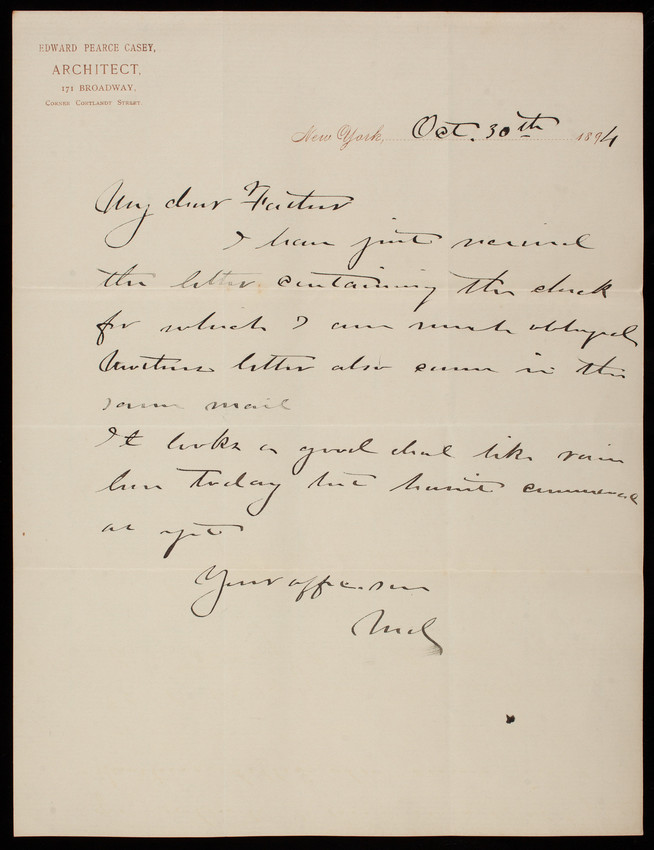 EDWARD PEARCE CASEY,
ARCHITECT,
171 BROADWAY,
CORNER CORTLANDT STREET.
New York, Oct. 30th 1894
My dear Father
I have just received
the letter containing the check
for which I am much obliged
Mothers letter also came in the
same mail
It looks a good deal like rain
here today but hasnt commenced
as yet
Your affec. son
Ned